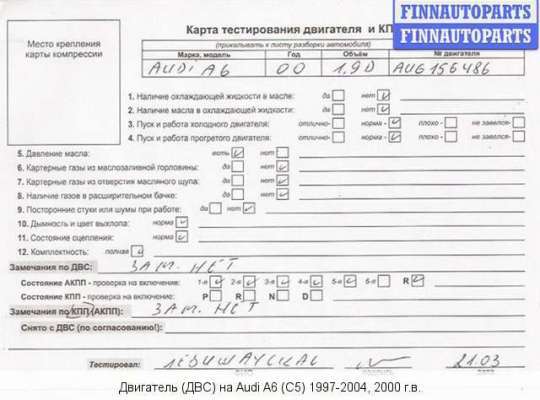 FINNAUTOPARTS
FINNAUTOPARTS
Место крепления карты компрессии
Карта тестирования двигателя и КП
(прикалывать к листу разборки автомобиля)
Марка, модель Год Объём № двигателя
AUDI A6 00 1,9D AUG156486
1. Наличие охлаждающей жидкости в масле: да нет
2. Наличие масла в охлаждающей жидкости: да нет
3. Пуск и работа холодного двигателя: отлично- норма - плохо - не завелся-
4. Пуск и работа прогретого двигателя: отлично- норма - плохо - не завелся-
5. Давление масла: есть нет
6. Картерные газы из маслозаливной горловины: да нет
7. Картерные газы из отверстия масляного щупа: да нет
8. Наличие газов в расширительном бачке: да нет
9. Посторонние стуки или шумы при работе: да нет
10. Дымность и цвет выхлопа: норма
11. Состояние сцепления: норма
12. Комплектность: полная
Замечания по ДВС: ЗАМ. НЕТ
Состояние АКПП - проверка на включение: 1-я 2-я 3-я 4-я 5-я 6-я R
Состояние КПП - проверка на включение: P R N D
Замечания по КПП (АКПП): ЗАМ. НЕТ
Снято с ДВС (по согласованию!):
Тестировал: 21.03
Двигатель (ДВС) на Audi A6 (C5) 1997-2004, 2000 г.в.